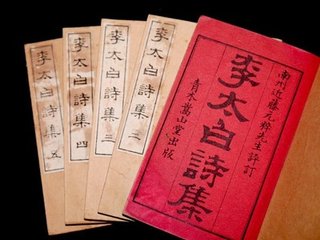 南州近藤元粹先生評訂
李太白詩集
青木嵩山堂出版
李太白詩集 二
李太白詩集 三
李太白詩集 四
李太白詩集 五